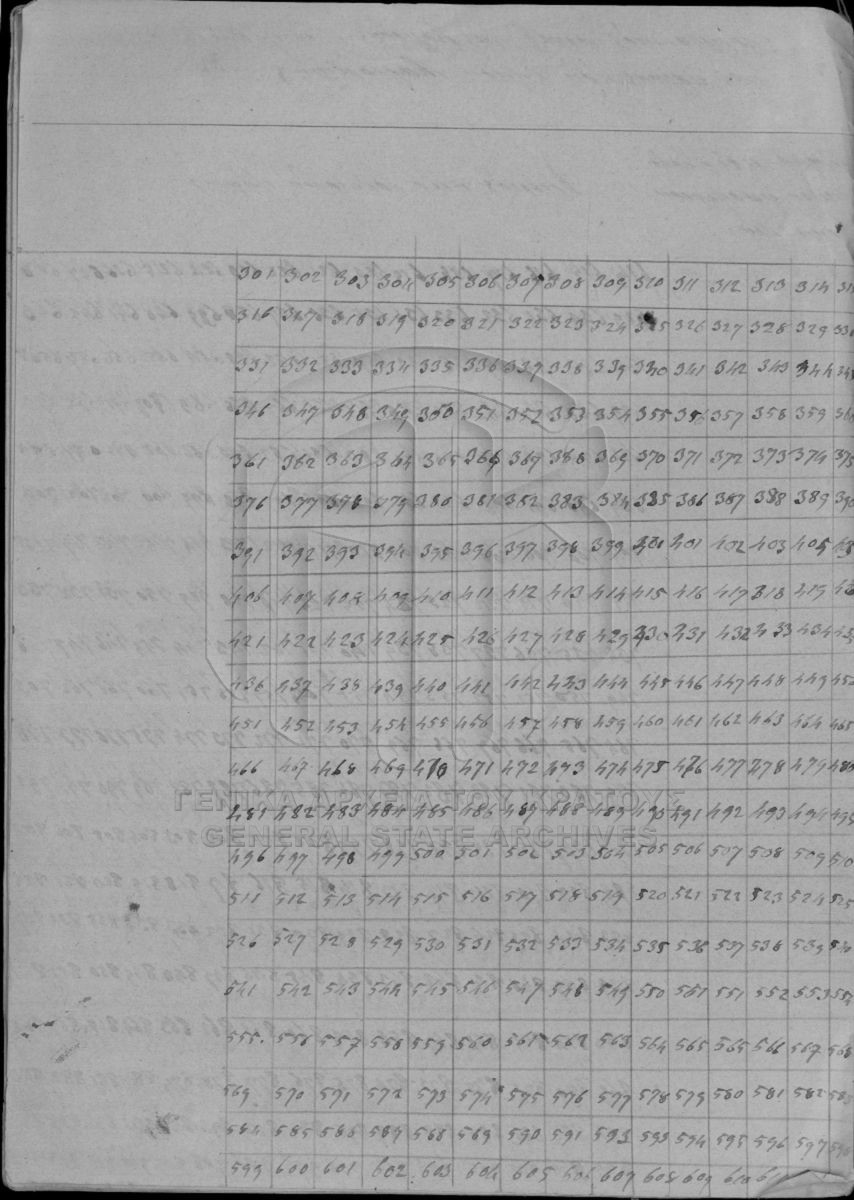 301 302 303 304 305 306 307 308 309 310 311 312 313 314
316 317 318 319 320 321 322 323 324 325 326 327 328 329 330
331 332 333 334 335 336 337 338 339 340 341 342 343 344 345
346 347 348 349 350 351 352 353 354 355 356 357 358 359 360
361 362 363 364 365 366 367 368 369 370 371 372 373 374 375
376 377 378 379 380 381 382 383 384 385 386 387 388 389 390
391 392 393 394 395 396 397 398 399 401 402 403 405
406 407 408 409 410 411 412 413 414 415 416 417 318 419
421 422 423 424 425 426 427 428 429 430 431 432 433 434 435
436 437 438 439 440 441 442 443 444 445 446 447 448 449
451 452 453 454 455 456 457 458 459 460 461 462 463 464 465
466 467 468 469 470 471 472 473 474 475 476 477 478 479 480
481 482 483 484 485 486 487 488 489 490 491 492 493 494 495
ΓΕΝΙΚΑ ΑΡΧΕΙΑ ΤΟΥ ΚΡΑΤΟΥΣ
GENERAL STATE ARCHIVES
496 497 498 499 500 501 502 503 504 505 506 507 508 509 510
511 512 513 514 515 516 517 518 519 520 521 522 523 524 525
526 527 528 529 530 531 532 533 534 535 536 537 538 539 540
541 542 543 544 545 546 547 548 549 550 551 551 552 553 554
555 556 557 558 559 560 561 562 563 564 565 565 566 567 568
569 570 571 572 573 574 575 576 577 578 579 580 581 582 583
584 585 586 587 568 569 590 591 593 593 594 595 596 597
599 600 601 602 603 604 605 606 607 608 609 610